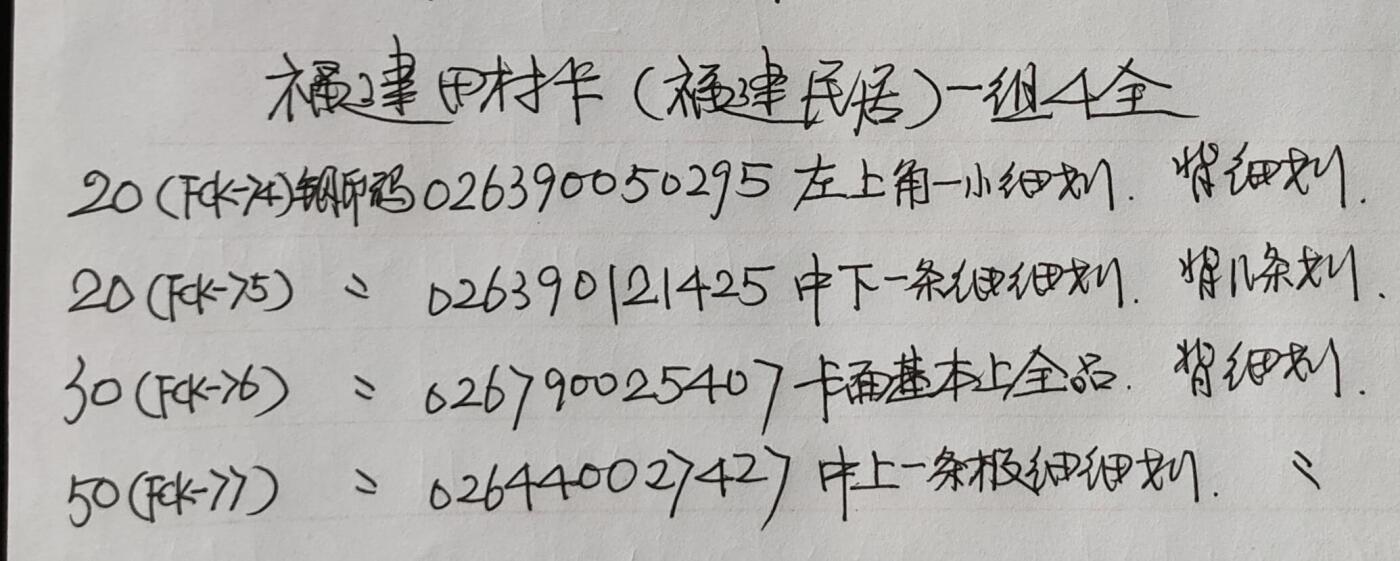 福建田村卡（福建民居）一组4全
20(FCK-74)钢印码026390050295左上角一小细划. 背细划.
20(FCK-75) 〃 026390121425中下一条细细划. 背几条划.
30(FCK-76) 〃 026790025407卡面基本上全品. 背细划.
50(FCK-77) 〃 026440027427中上一条极细细划. 〃